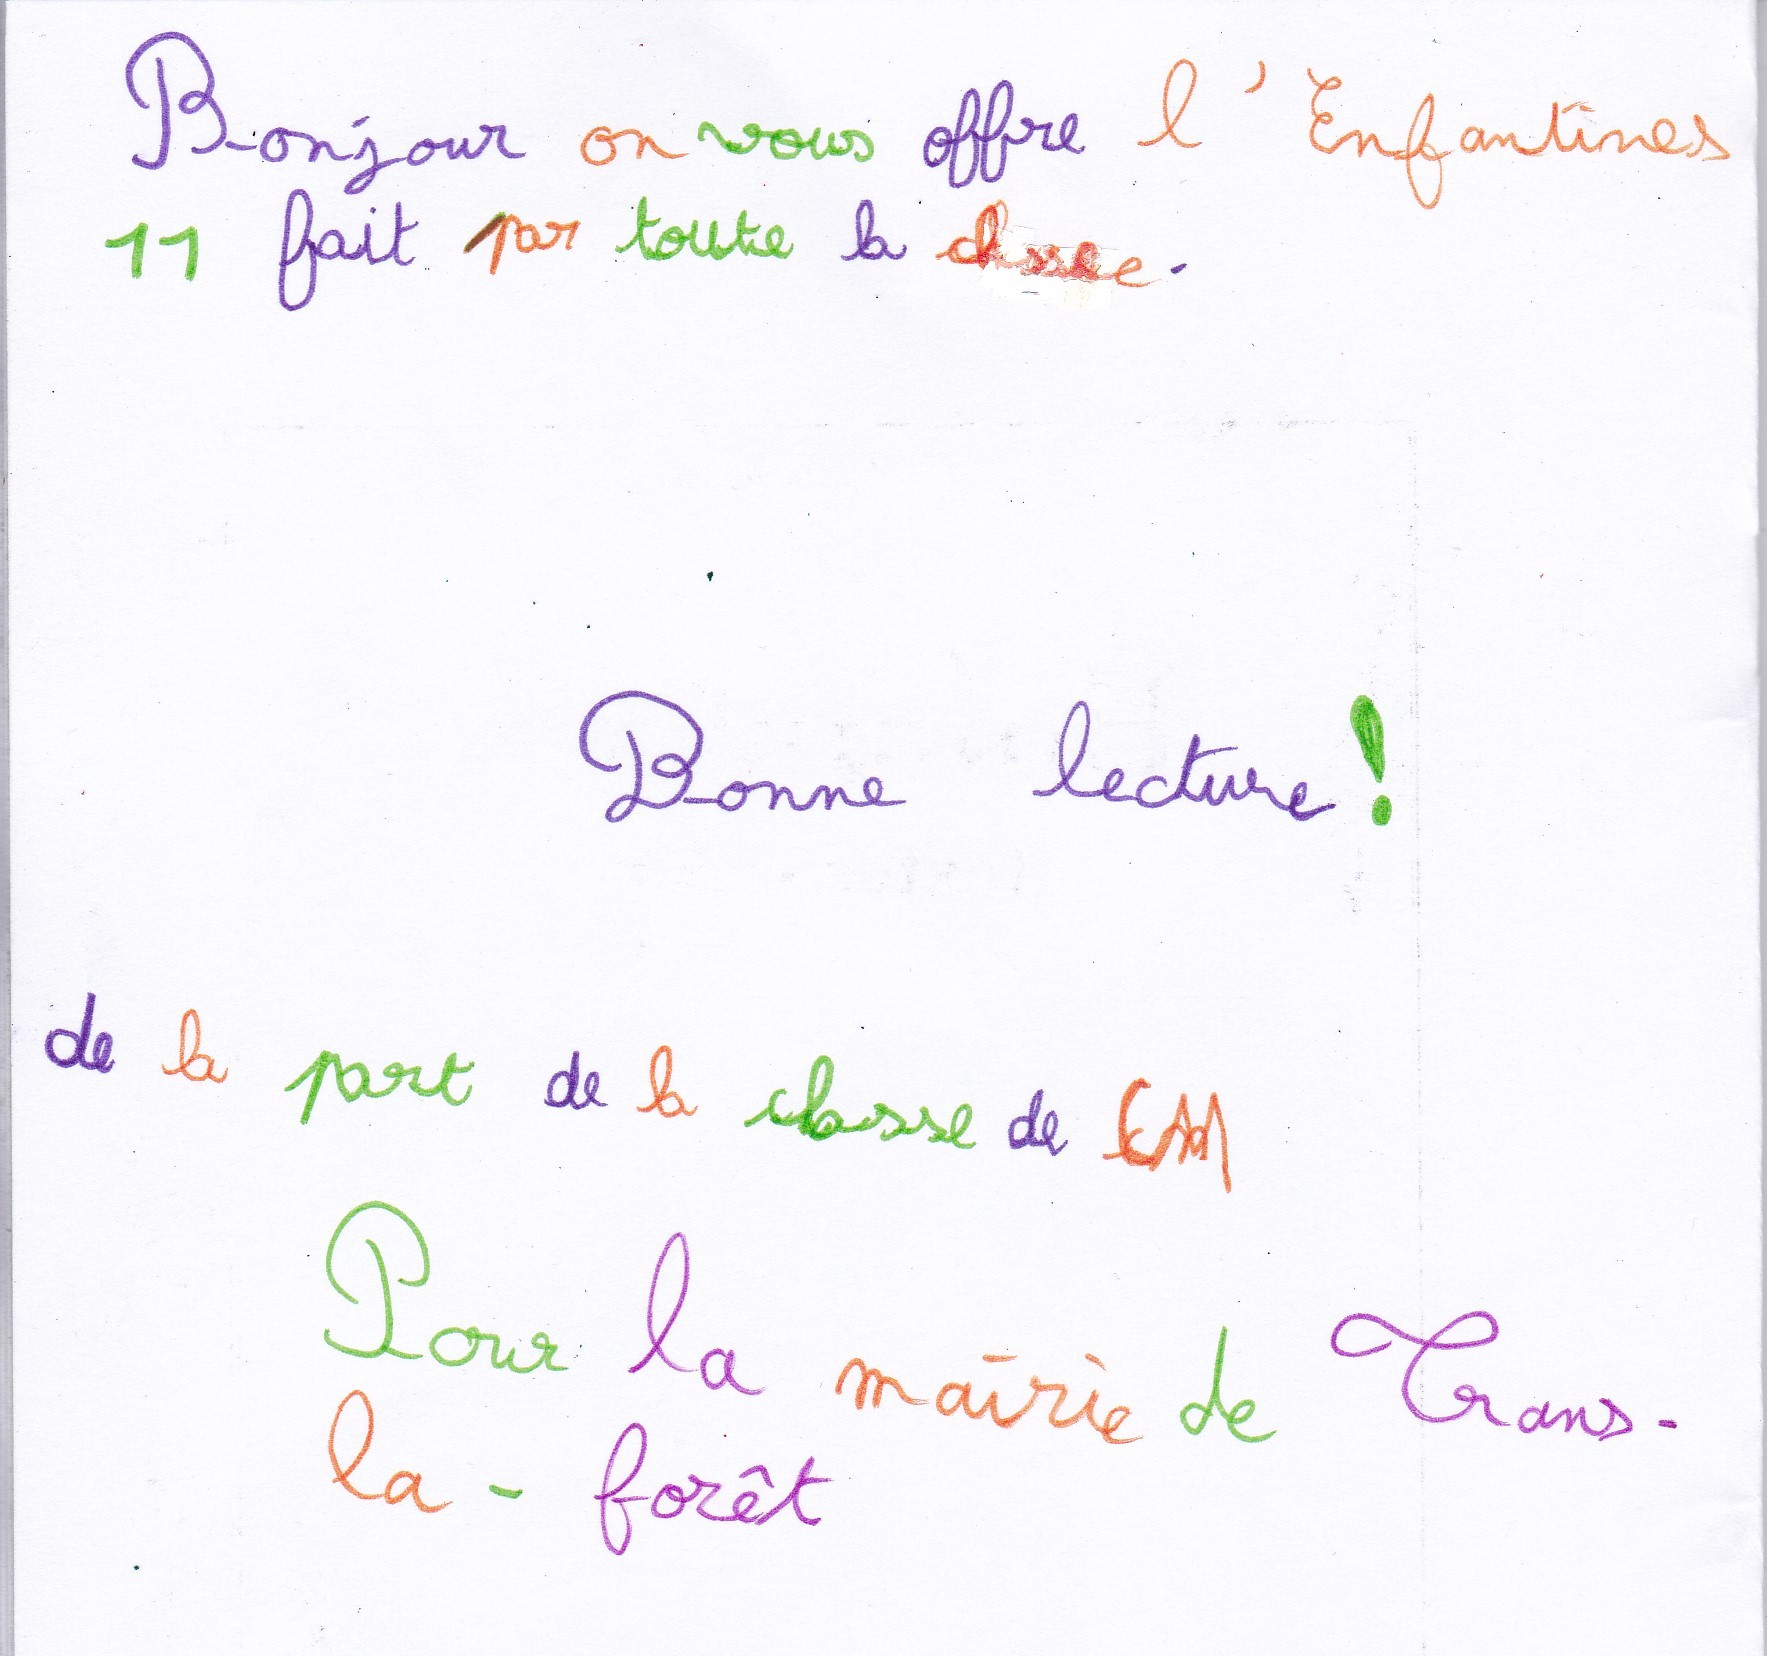 Bonjour on vous offre l'Enfantines
11 fait par toute la classe.
Bonne lecture!
de la part de la classe de CM
Pour la mairie de Trans-
la-forêt